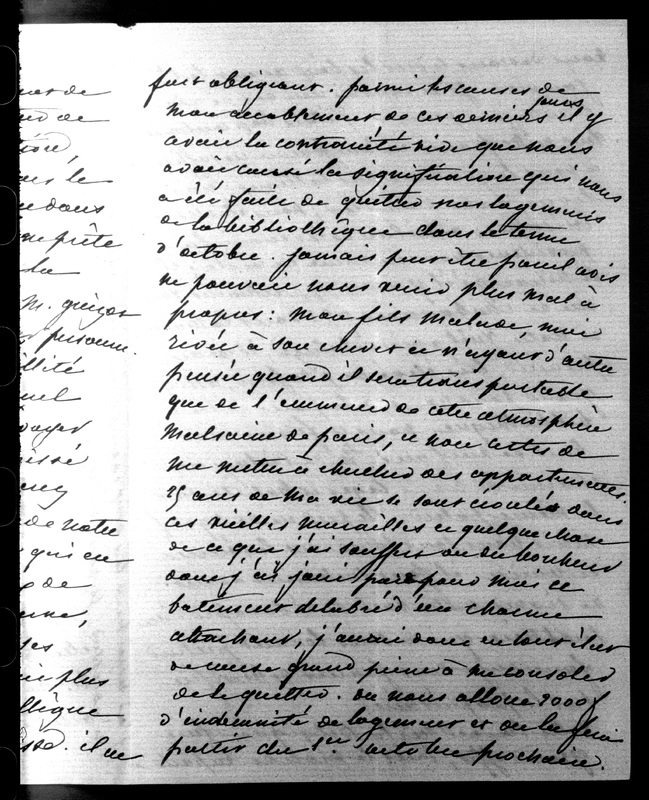 ner de
M. guizot
personne
illité
uel
voyer
issé
de notre
qui en
de
ses
plus
llèque
il ne
fort obligeant. parmi les causes de
mon accablement de ces derniers jours il y
avait la contrariété vive que nous
avait causé la signification qui nous
a été faite de quitter nos logements
de la bibliothèque dans le terme
d'octobre. jamais peut être pareil avis
ne pouvait nous venir plus mal à
propos: mon fils malade, moi
rivée à son chevet et n'ayant d'autre
pensée quand il sera transportable
que de l'emmener de cette atmosphère
malsaine de paris, et non certes de
me mettre à chercher des appartements.
25 ans de ma vie se sont écoulés dans
ces vieilles murailles et quelque chose
de ce que j'ai souffert ou du bonheur
dont j'ai joui pare pour moi ce
batiment delabré d'un charme
attachant, j'aurai donc en tout état
de cause grand peine à me consoler
de le quitter. on nous alloue 2000 f
d'indemnité de logement et on la fera
partir du 1er octobre prochain.